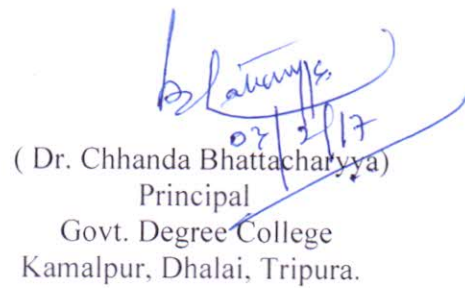 02/2/17
( Dr. Chhanda Bhattacharyya)
Principal
Govt. Degree College
Kamalpur, Dhalai, Tripura.